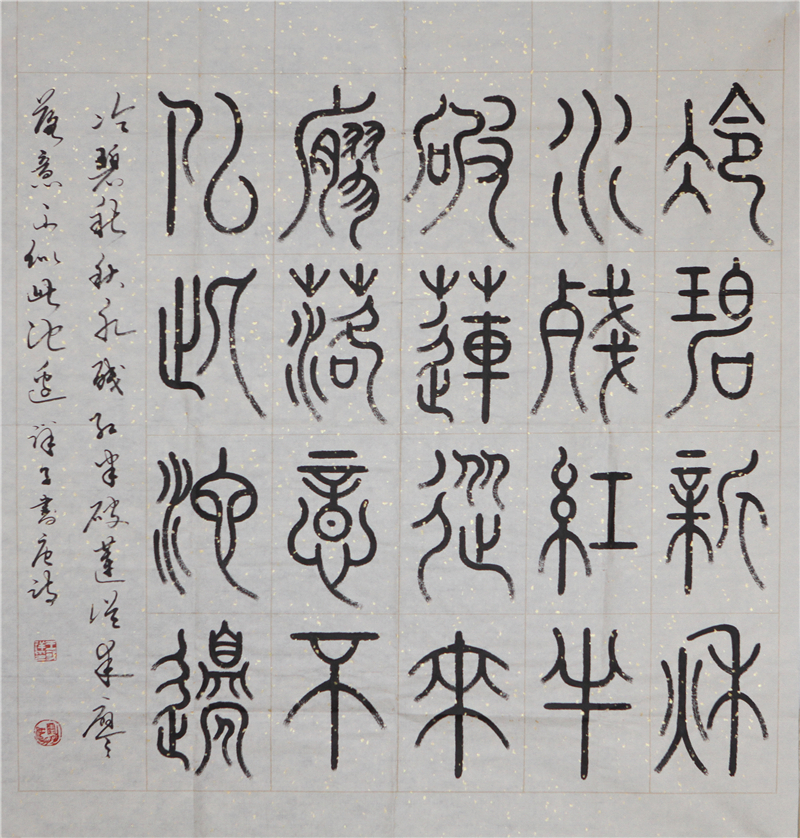 冷碧新秋
水殘紅半
破蓮從來
寥落意不
似此池邊
冷碧新秋水殘紅半破蓮從來寥
落意不似此池邊 書唐詩